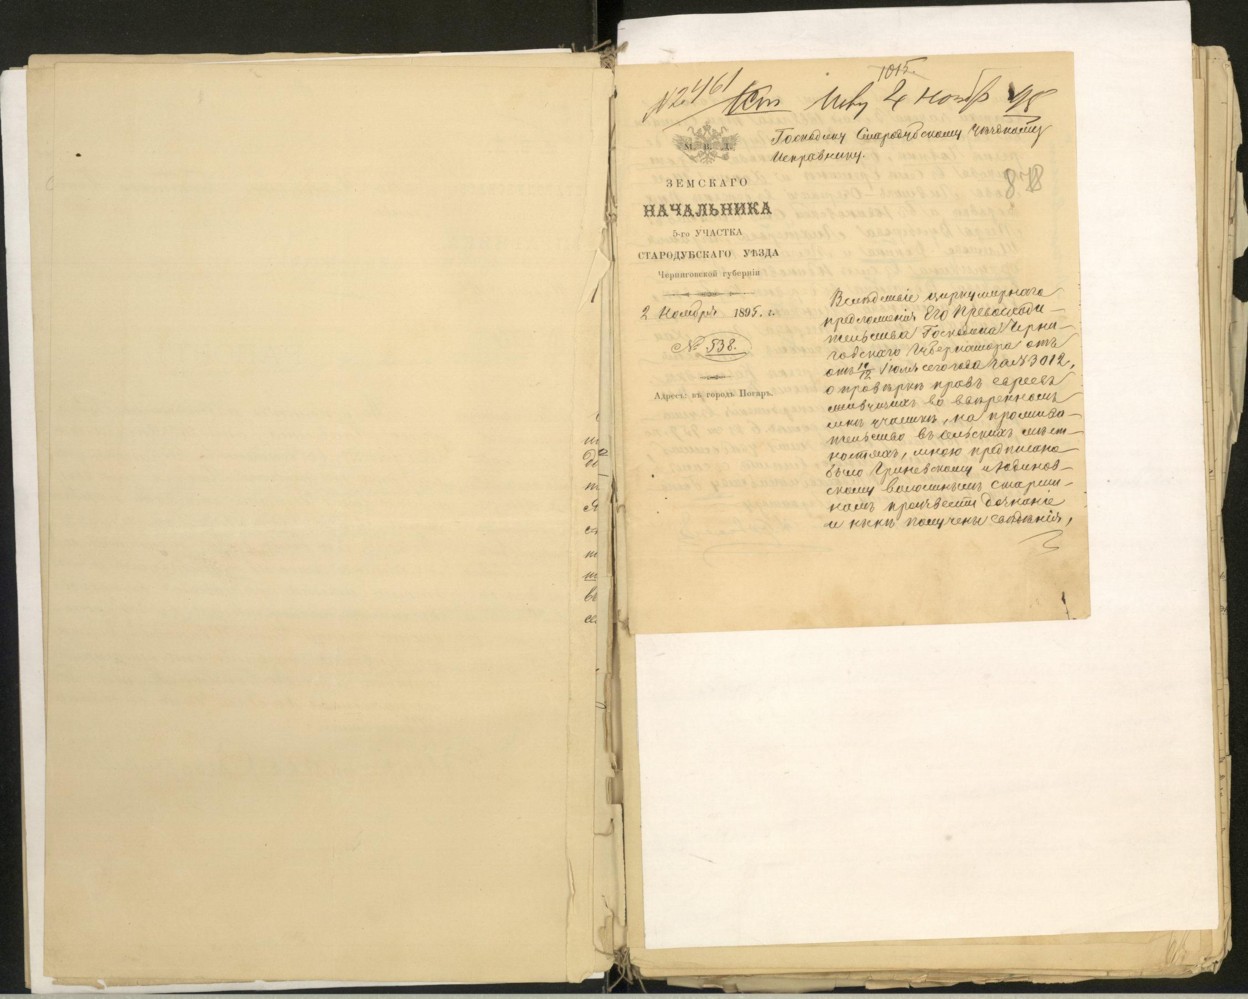 № 2461
1015
4 Нояб 95
Господину Стародубскому Уѣздному
Исправнику.
М. В. Д.
ЗЕМСКАГО
НАЧАЛЬНИКА
5-го УЧАСТКА
СТАРОДУБСКАГО УѢЗДА
Черниговской губерніи
2 Ноября 1895. г.
№ 538.
Адресъ: въ городъ Погаръ.
878
Вслѣдствіе циркулярного
предложенія Его Превосходи-
тельства Господина Черни-
говскаго Губернатора отъ
отъ Іюля сего года за № 3012,
о провѣркѣ правъ евреевъ
жившихъ во ввѣренномъ
мнѣ участкѣ, на прожива-
тельство въ сельскихъ мѣст-
ностяхъ, мною предписано
было Гриневскому и Юдинов-
скому волостнымъ старши-
намъ произвести дознаніе
и нынѣ получены свѣдѣнія,